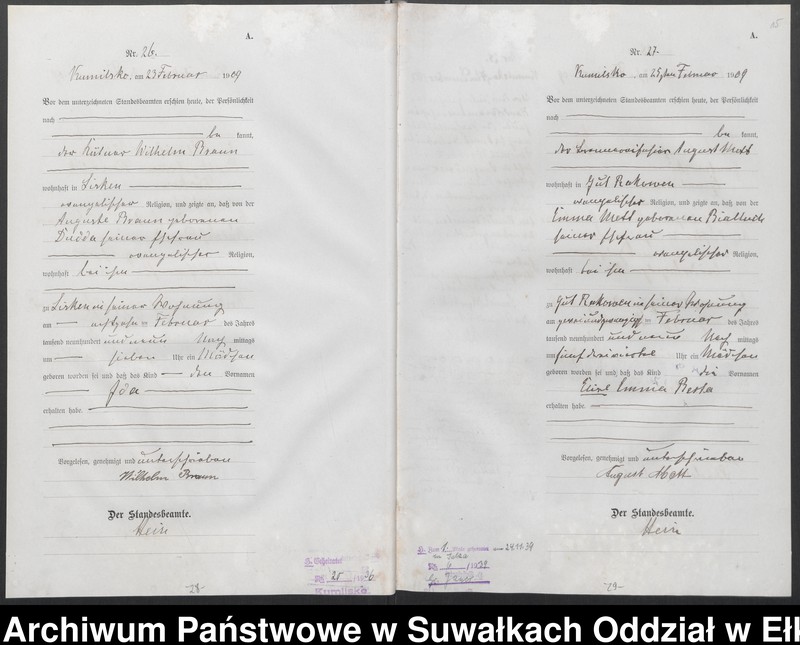 A.
Nr. 26.
Kumilsko, am 23 Februar 1909
Vor dem unterzeichneten Standesbeamten erschien heute, der Persönlichkeit
nach
be kannt,
der Wilhelm Braun
wohnhaft in Lisken
evangelischer Religion, und zeigte an, daß von der
Auguste Braun geborenen
Dudda seiner Ehefrau
evangelischer Religion,
wohnhaft bei ihm
zu Lisken in seiner Wohnung
am achtzehn ten Februar des Jahres
tausend neunhundert und neun Nach mittags
um sieben Uhr ein Mädchen
geboren worden sei und daß das Kind den Vornamen
Ida
erhalten habe.
Vorgelesen, genehmigt und unterschrieben
Wilhelm Braun
Der Standesbeamte.
Hein
-28-
15
A.
Nr. 27.
Kumilsko, am 25ten Februar 1909
Vor dem unterzeichneten Standesbeamten erschien heute, der Persönlichkeit
nach
be kannt,
der August Mett
wohnhaft in Gut Rakowen
evangelischer Religion, und zeigte an, daß von der
Emma Mett geborenen
seiner Ehefrau
evangelischer Religion,
wohnhaft bei ihm
zu Gut Rakowen in seiner Wohnung
am zweiundzwanzigsten Februar des Jahres
tausend neunhundert und neun Nach mittags
um fünf dreiviertel Uhr ein Mädchen
geboren worden sei und daß das Kind die Vornamen
Emma Berta
erhalten habe.
Vorgelesen, genehmigt und unterschrieben
August Mett
Der Standesbeamte.
Hein
-29-
Archiwum Państwowe w Suwałkach Oddział w Ełk